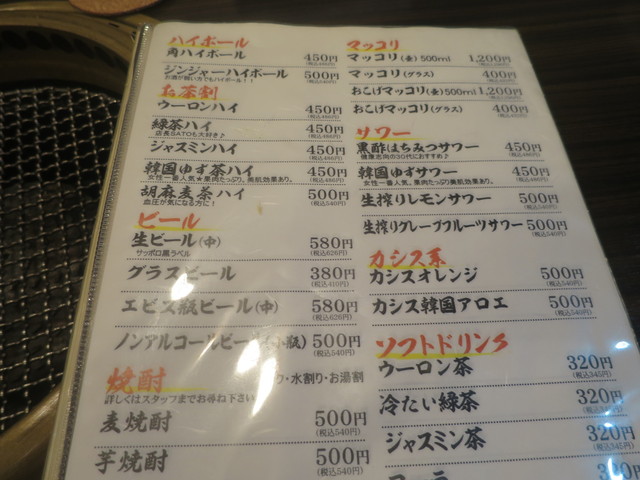 ハイボール
角ハイボール 450円
(税込486円)
ジンジャーハイボール 500円
お酒が弱い方でもハイボール!! (税込540円)
お茶割
ウーロンハイ 450円
(税込486円)
緑茶ハイ 450円
店長SATOも大好き♪ (税込486円)
ジャスミンハイ 450円
(税込486円)
韓国ゆず茶ハイ 450円
女性一番人気★果肉たっぷり、美肌効果あり。 (税込486円)
胡麻麦茶ハイ 500円
血圧が気になる方に! (税込540円)
ビール
生ビール(中) 580円
サッポロ黒ラベル (税込626円)
グラスビール 380円
(税込410円)
エビス瓶ビール(中) 580円
(税込626円)
ノンアルコールビー 小瓶) 500円
(税込540円)
焼酎 ク・水割り・お湯割
詳しくはスタッフまでお尋ね下さい
麦焼酎 500円
(税込540円)
芋焼酎 500円
(税込540円)
マッコリ
マッコリ(壺)500ml 1,200円
マッコリ(グラス) 400円
おこげマッコリ(壺)500ml 1,200円
おこげマッコリ(グラス) 400円
サワー
黒酢はちみつサワー 450円
健康志向の30代におすすめ♪ (税込486円)
韓国ゆずサワー 450円
女性一番人気。果肉たっぷり美肌効果あり。 (税込486円)
生搾りレモンサワー 500円
(税込540円)
生搾りグレープフルーツサワー 500円
(税込540円)
カシス系
カシスオレンジ 500円
(税込540円)
カシス韓国アロエ 500円
(税込540円)
ソフトドリンク
ウーロン茶 320円
(税込345円)
冷たい緑茶 320円
(税込345円)
ジャスミン茶 320円
(税込345円)